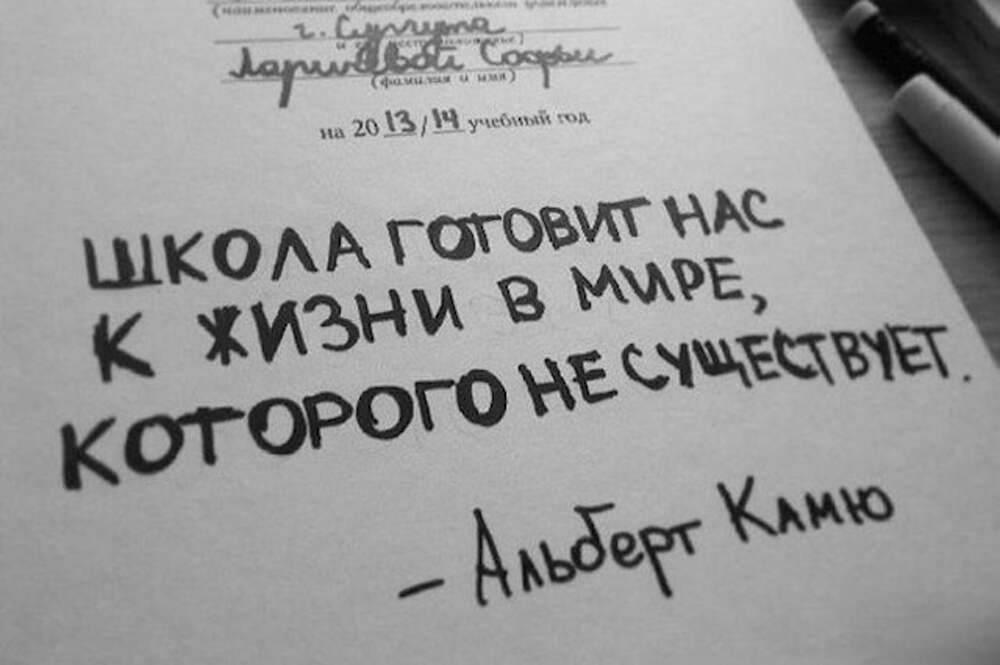 (наименование общеобразовательного учреждения
г. Сургута
Лариновой Софьи
(фамилия и имя)
на 20 13/14 учебный год
ШКОЛА ГОТОВИТ НАС
К ЖИЗНИ В МИРЕ,
КОТОРОГО НЕ СУЩЕСТВУЕТ.
– Альберт Камю